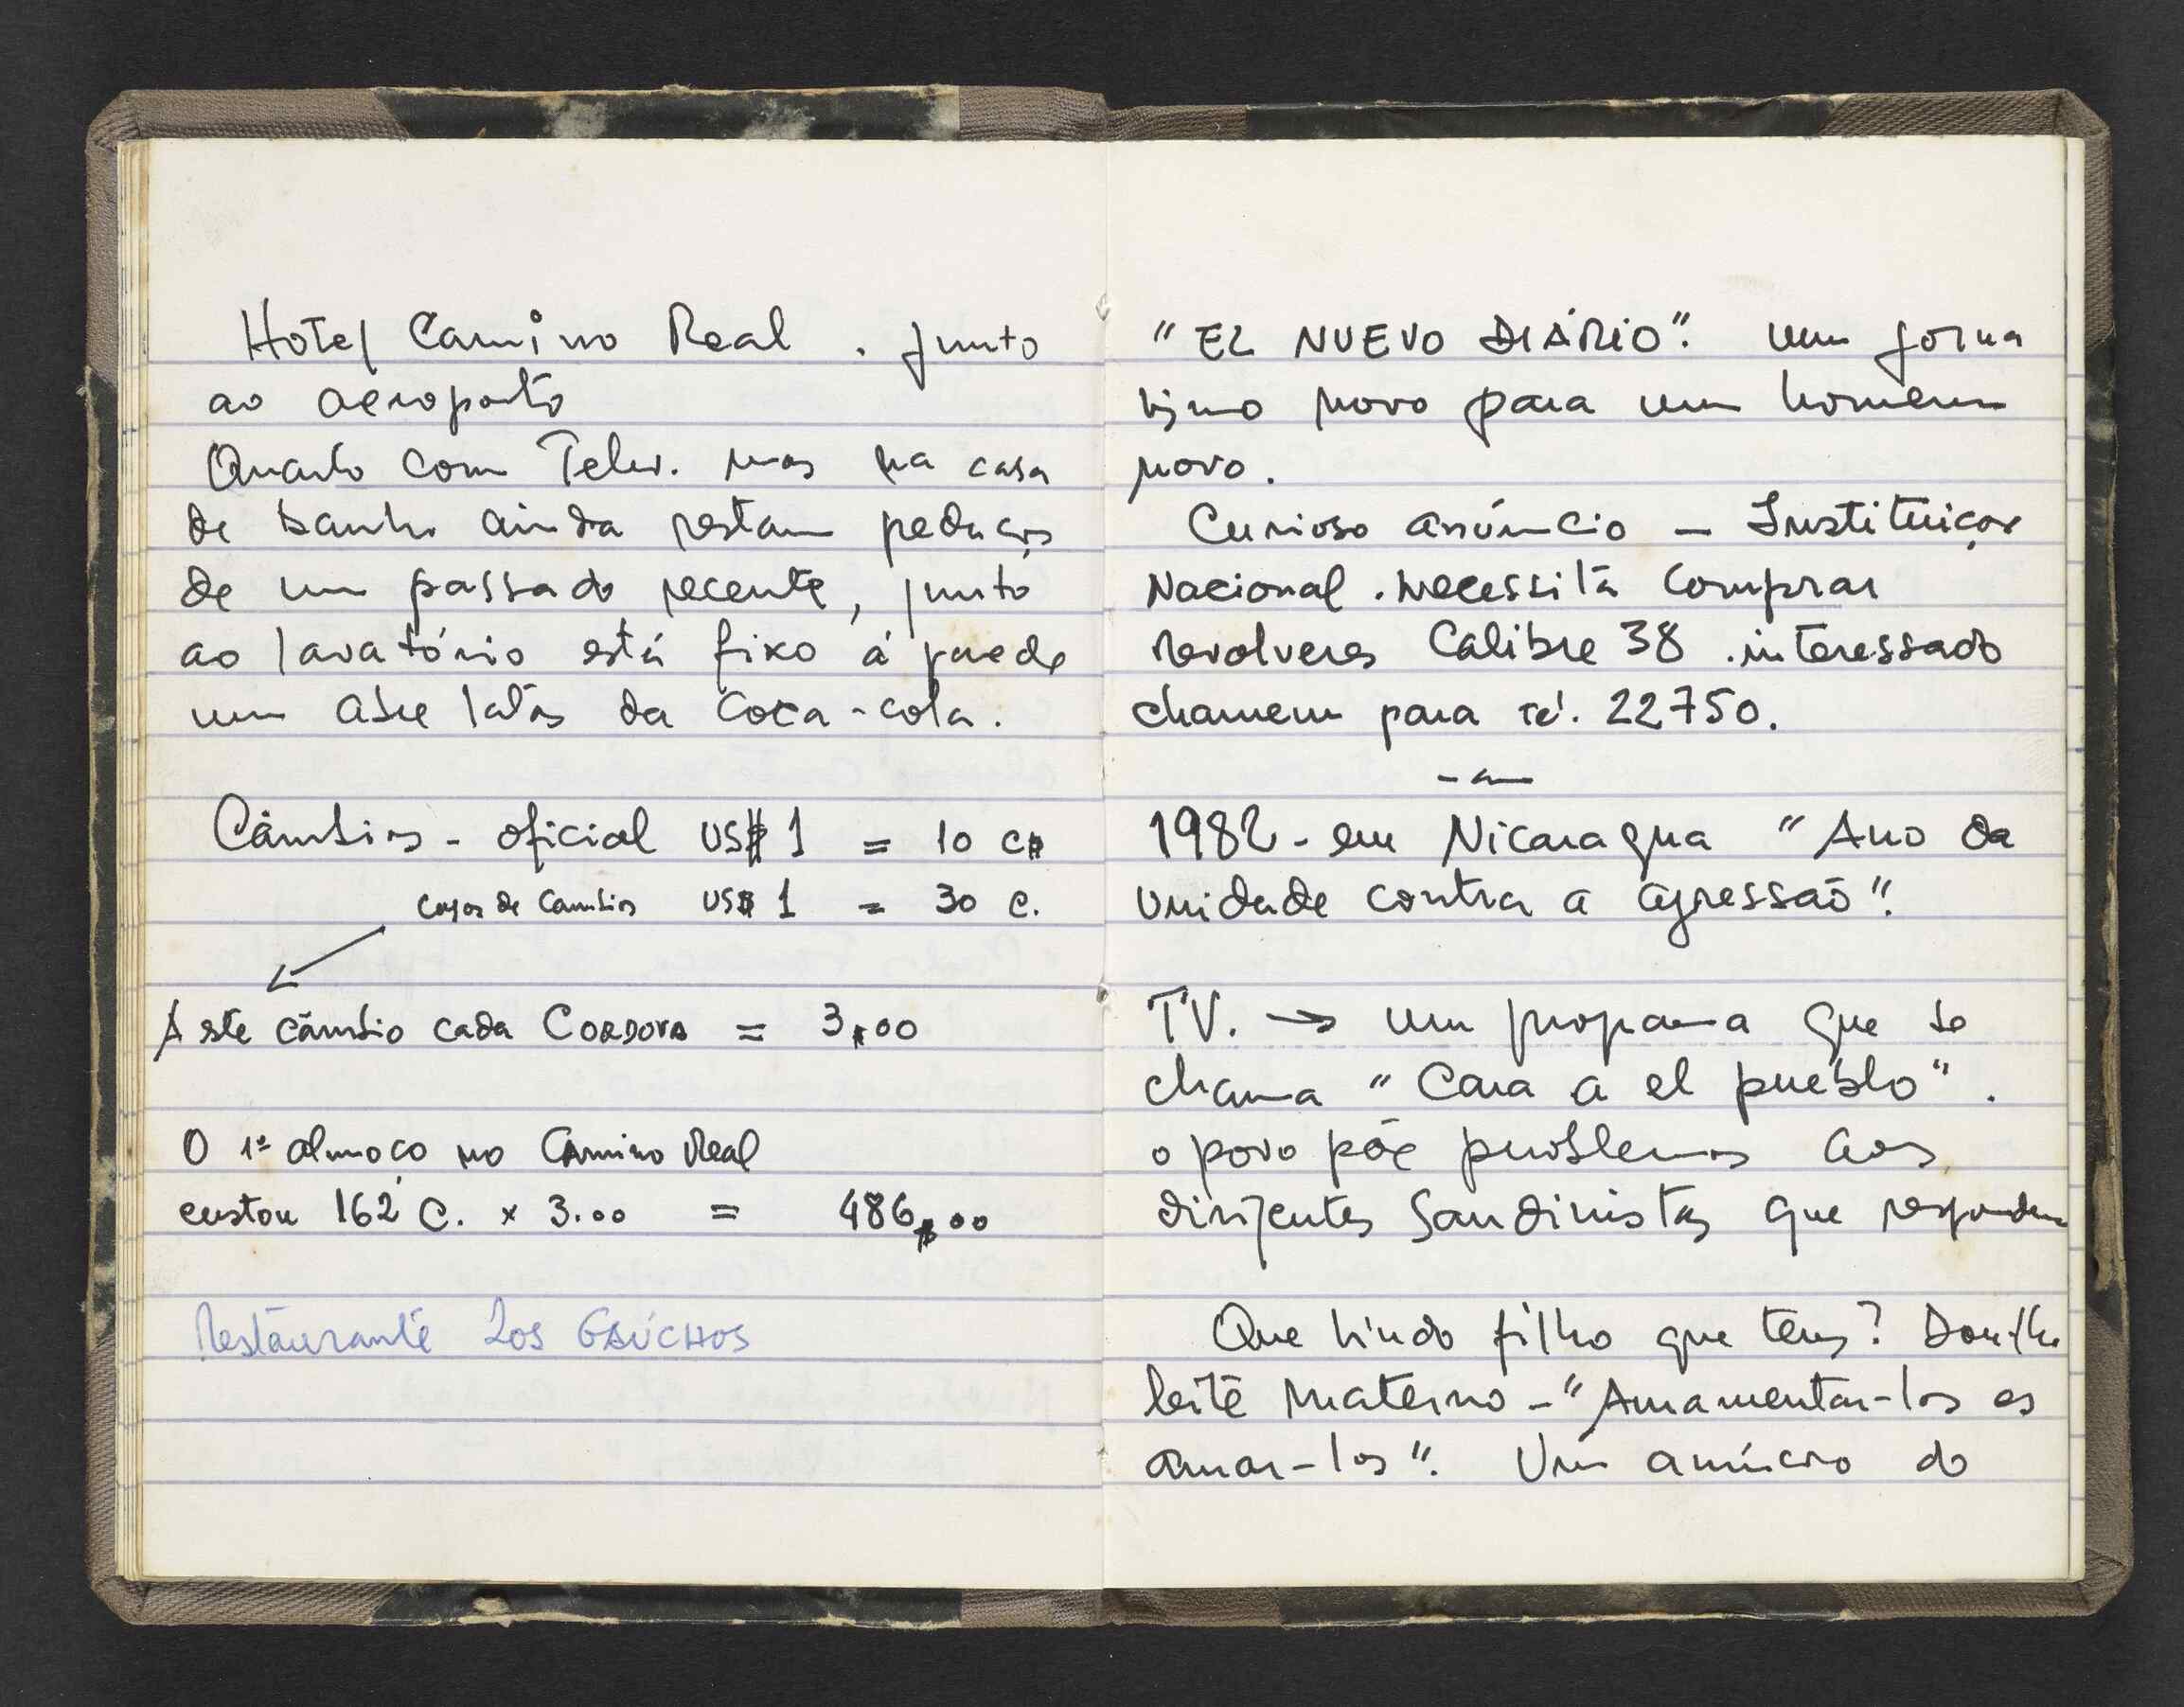 Hotel Camino Real . Junto
ao aeroporto
Quarto com Telev. mas na casa
de banho ainda restam pedaços
de um passado recente, junto
ao lavatório está fixo á parede
um abre latas da Coca-cola.
Câmbios - oficial US$ 1 = 10 C$
casas de Cambios US$ 1 = 30 C.
A este câmbio cada CORDOVA = 3$00
O 1º almoço no Camino Real
custou 162 C. x 3.00 = 486$00
Restaurante LOS GAÚCHOS
"EL NUEVO DIÁRIO". um jorna
lismo novo para um homem
novo.
Curioso anúncio - Instituiçoe
Nacional . necessita comprar
revolveres Calibre 38 . interessado
chamem para te. 22750.
1982 - em Nicaragua "Ano da
Unidade contra a agressão".
TV. → um programa que se
chama "Cara a el pueblo".
o povo põe problemas aos
dirijentes Sandinistas que respondem
Que lindo filho que tens? Dou-lhe
leite Materno - "Amamentar-los es
amar-los". Um anúncio do